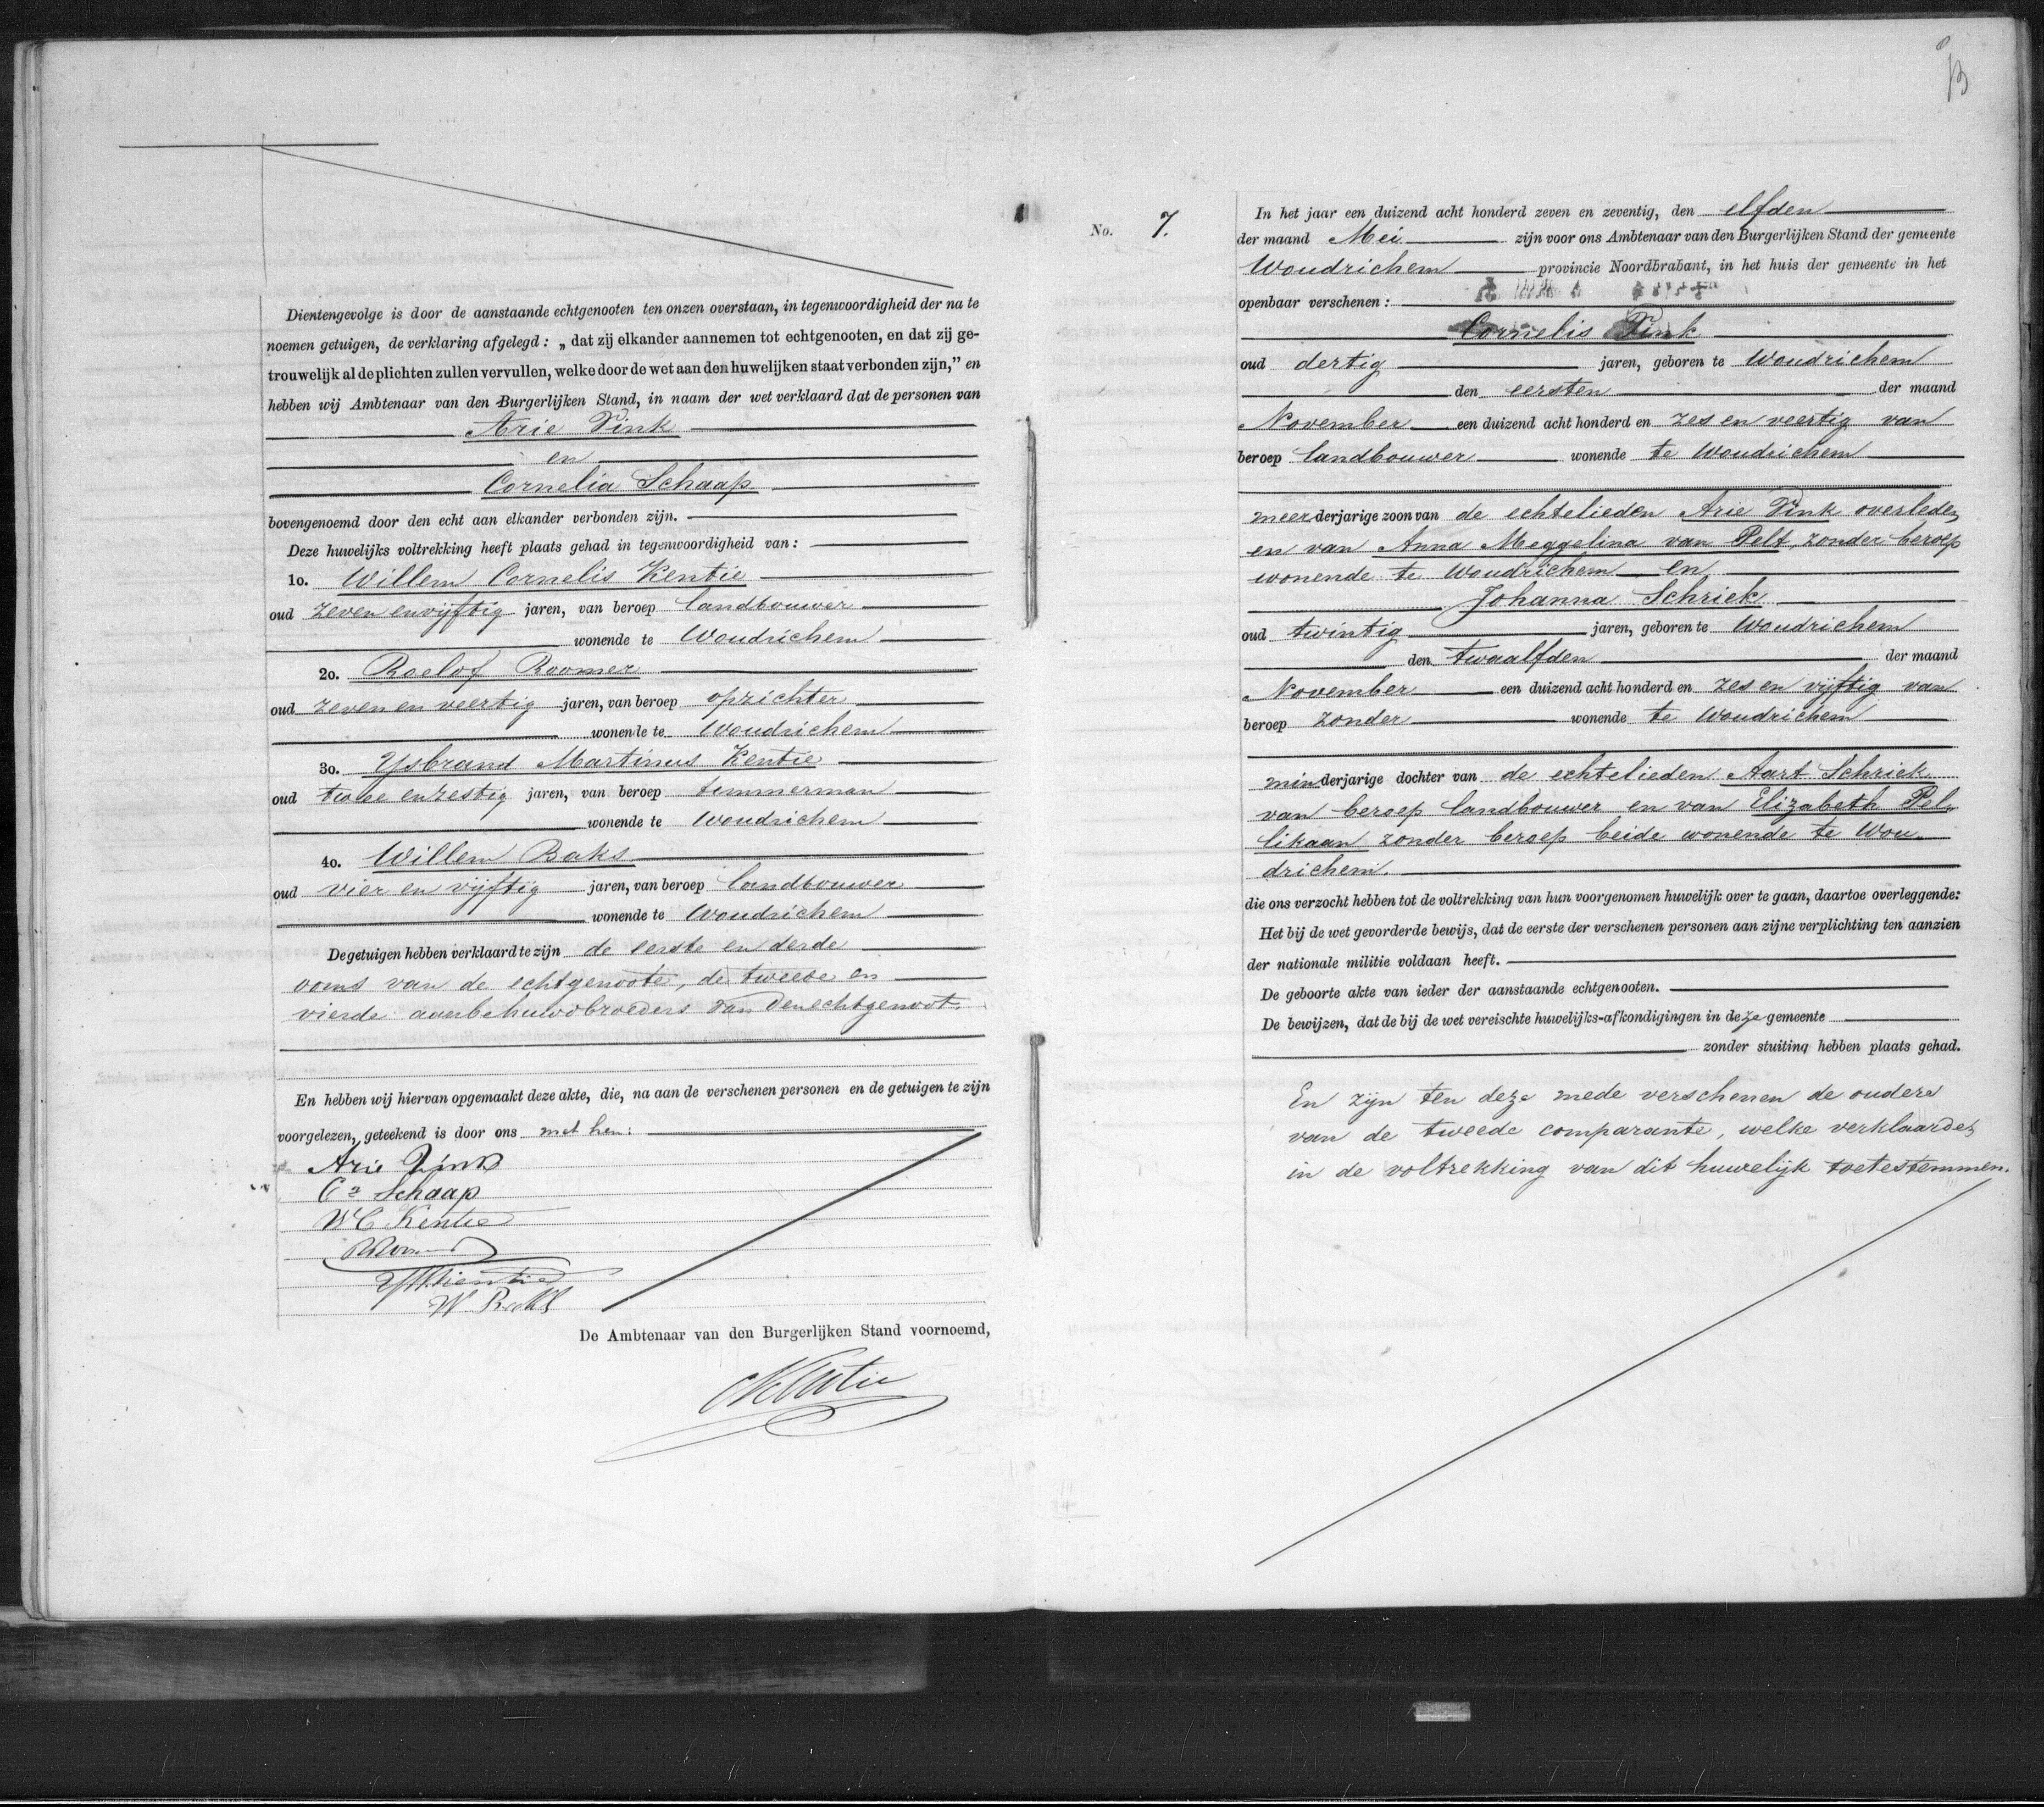 Dientengevolge is door de aanstaande echtgenooten ten onzen overstaan, in tegenwoordigheid der na te
noemen getuigen, de verklaring afgelegd: „dat zij elkander aannemen tot echtgenooten, en dat zij ge-
trouwelijk al de plichten zullen vervullen, welke door de wet aan den huwelijken staat verbonden zijn,” en
hebben wij Ambtenaar van den Burgerlijken Stand, in naam der wet verklaard dat de personen van
Arie Pink
en
Cornelia Schaap
bovengenoemd door den echt aan elkander verbonden zijn.
Deze huwelijks voltrekking heeft plaats gehad in tegenwoordigheid van:
1o. Willem Cornelis Kentie
oud zeven en vijftig jaren, van beroep landbouwer
wonende te Woudrichem
2o. Roelof Roomer
oud zeven en veertig jaren, van beroep opzichter
wonende te Woudrichem
3o. Ysbrand Martinus Kentie
oud twee en zestig jaren, van beroep timmerman
wonende te Woudrichem
4o. Willem Baks
oud vier en vijftig jaren, van beroep landbouwer
wonende te Woudrichem
De getuigen hebben verklaard te zijn de eerste en derde
ooms van de echtgenoote, de tweede en
vierde aanbehuwdbroeders van den echtgenoot.
En hebben wij hiervan opgemaakt deze akte, die, na aan de verschenen personen en de getuigen te zijn
voorgelezen, geteekend is door ons met hen:
Arie Pink
Ca Schaap
WC Kentie
RRoomer
YMKentie
W. Baks
De Ambtenaar van den Burgerlijken Stand voornoemd,
Kentie
13
No. 7.
In het jaar een duizend acht honderd zeven en zeventig, den elfden
der maand Mei zijn voor ons Ambtenaar van den Burgerlijken Stand der gemeente
Woudrichem provincie Noordbrabant, in het huis der gemeente in het
openbaar verschenen:
Cornelis Pink
oud dertig jaren, geboren te Woudrichem
den eersten der maand
November een duizend acht honderd en zes en veertig van
beroep landbouwer wonende te Woudrichem
meerderjarige zoon van de echtelieden Arie Pink overleden
en van Anna Meggelina van Pelt, zonder beroep
wonende te Woudrichem en
Johanna Schriek
oud twintig jaren, geboren te Woudrichem
den twaalfden der maand
November een duizend acht honderd en zes en vijftig van
beroep zonder wonende te Woudrichem
minderjarige dochter van de echtelieden Aart Schriek
van beroep landbouwer en van Elizabeth Pel-
likaan zonder beroep beide wonende te Wou-
drichem.
die ons verzocht hebben tot de voltrekking van hun voorgenomen huwelijk over te gaan, daartoe overleggende:
Het bij de wet gevorderde bewijs, dat de eerste der verschenen personen aan zijne verplichting ten aanzien
der nationale militie voldaan heeft.
De geboorte akte van ieder der aanstaande echtgenooten.
De bewijzen, dat de bij de wet vereischte huwelijks-afkondigingen in deze gemeente
zonder stuiting hebben plaats gehad.
En zijn ten deze mede verschenen de ouders
van de tweede comparante, welke verklaarden
in de voltrekking van dit huwelijk toetestemmen.